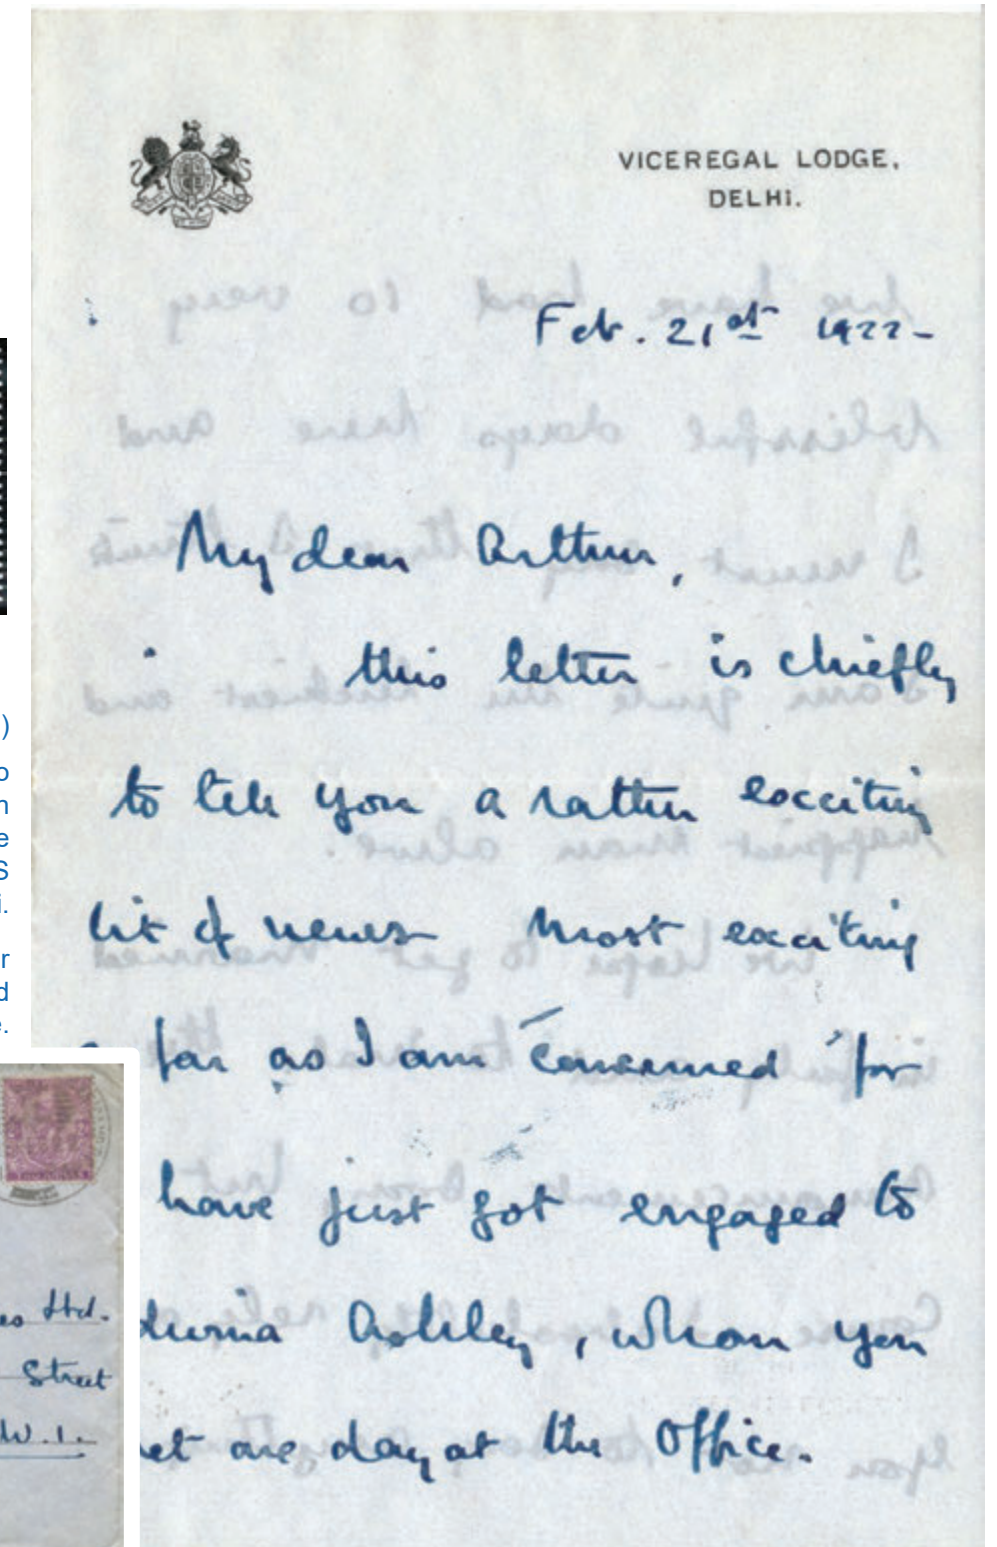 VICEREGAL LODGE,
DELHI.
Feb. 21st 1922-
My dear Arthur,
this letter is chiefly
to tell you a rather exciting
bit of news - most exciting
far as I am concerned for
have just got engaged to
dwina Ashley, whom you
et one day at the Office.
)
o
n
e
S
i.
r
d
e.
es Ltd.
Street
W.1.